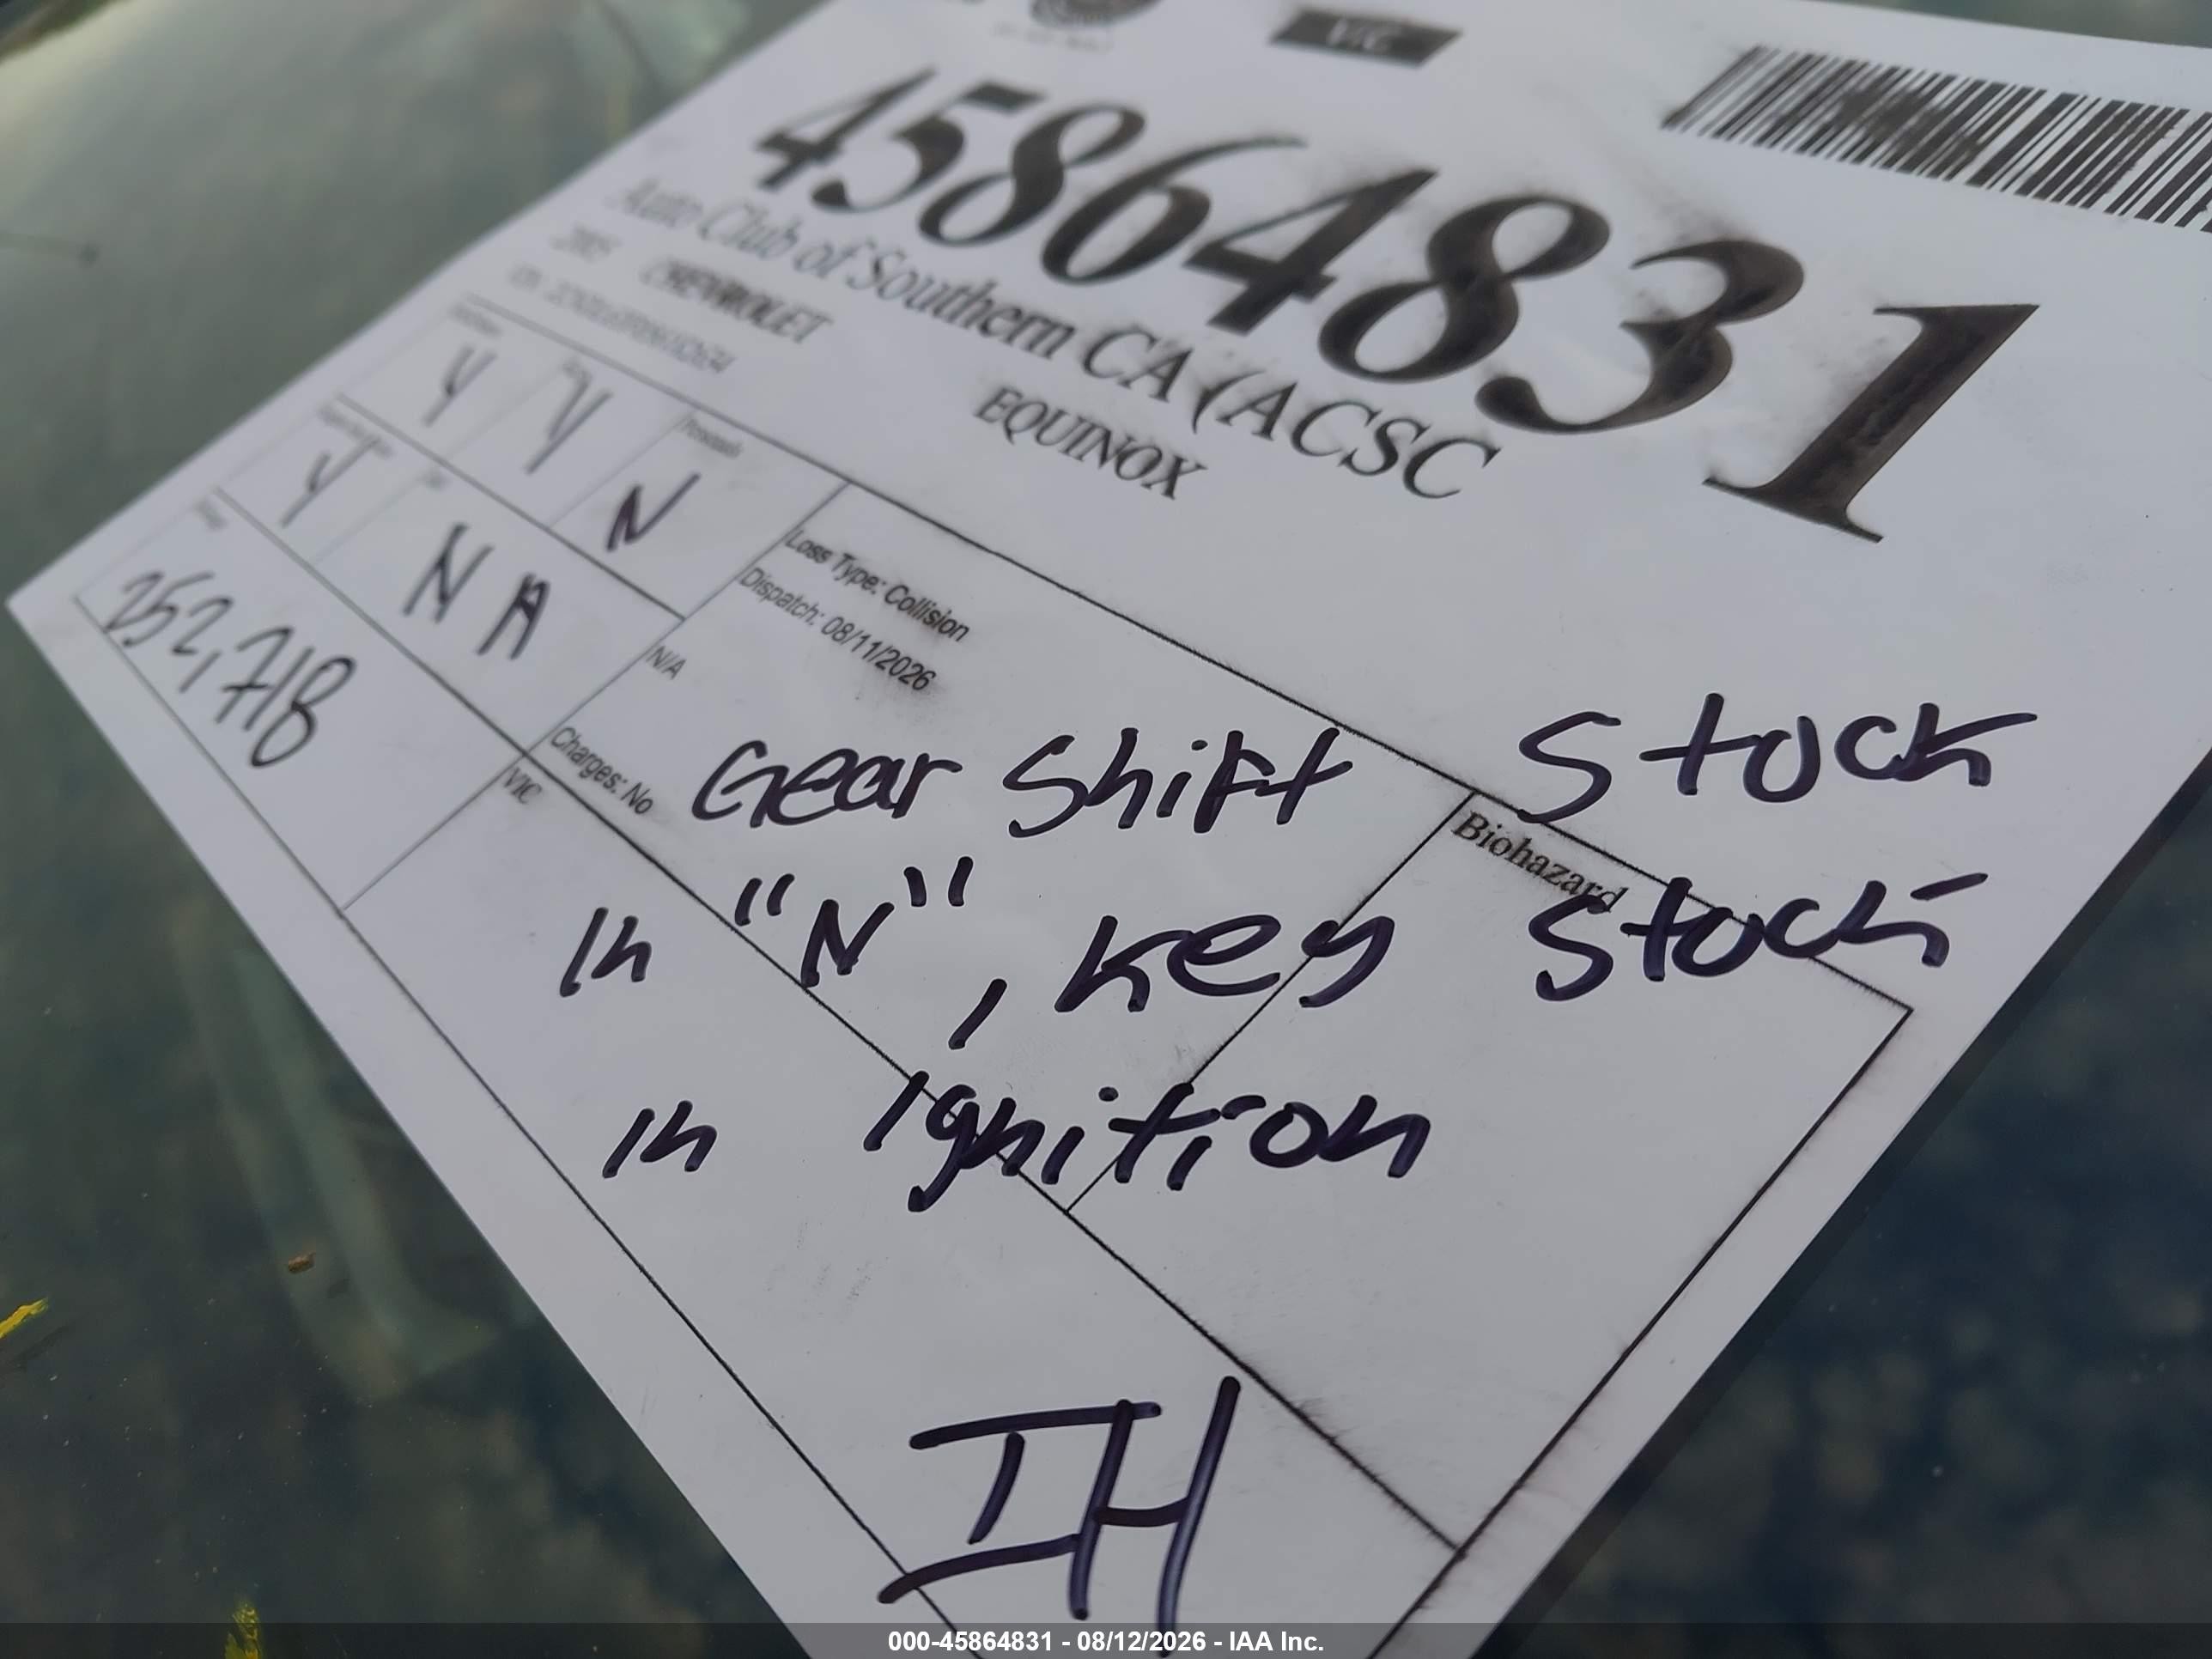 VIC
45864831
Auto Club of Southern CA (ACSC
2005 CHEVROLET EQUINOX
Y Y N
Y N A
252,718
Loss Type: Collision
Dispatch: 08/11/2026
N/A
Charges: No
VIC
Biohazard
Gear Shift Stock
in "N", key Stock
in ignition
IH
000-45864831 - 08/12/2026 - IAA Inc.